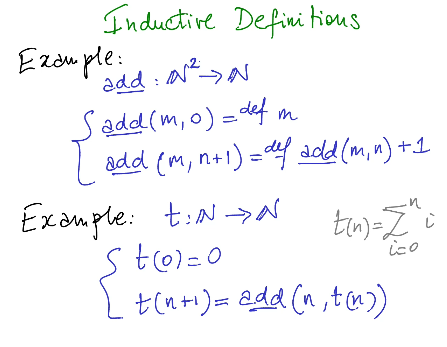 Inductive Definitions
Example:
add : ℕ² → ℕ
add(m, 0) =def m
add (m, n+1) =def add(m, n) + 1
Example: t : ℕ → ℕ
t(n) = ∑ⁿᵢ₌₀ i
t(0) = 0
t(n+1) = add (n, t(n))